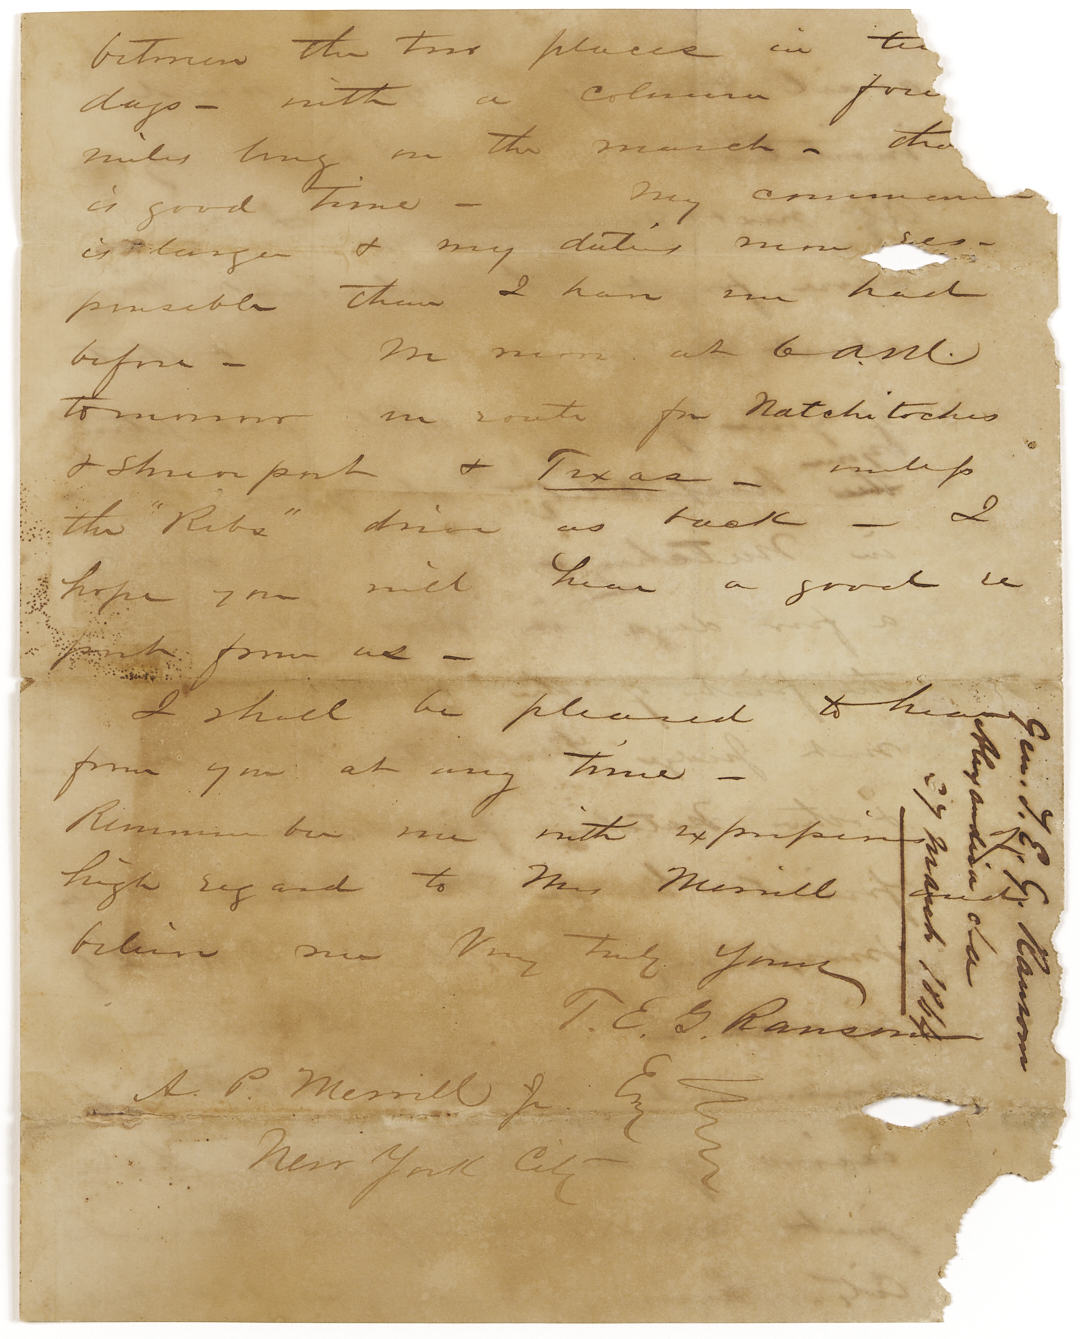 between the two places in
days - with a column
miles long on the march -
is good time - My comman
is larger & my duties more res-
ponsible than I have ever had
before - We move at 6 A.M.
tomorrow en route for Natchitoches
& Shreveport & Texas - unless
the "Rebs" drive us back - I
hope you will hear a good re
port from us -
I shall be pleased to hear
from you at any time -
Remember me with expressions
high regard to Mrs Merrill and
believe me Very truly Yours
T. E. G. Ransom
A. P. Merrill Jr. Esq
New York City
Gen. T. E. G. Ransom
Alexandria La
27 March 1864